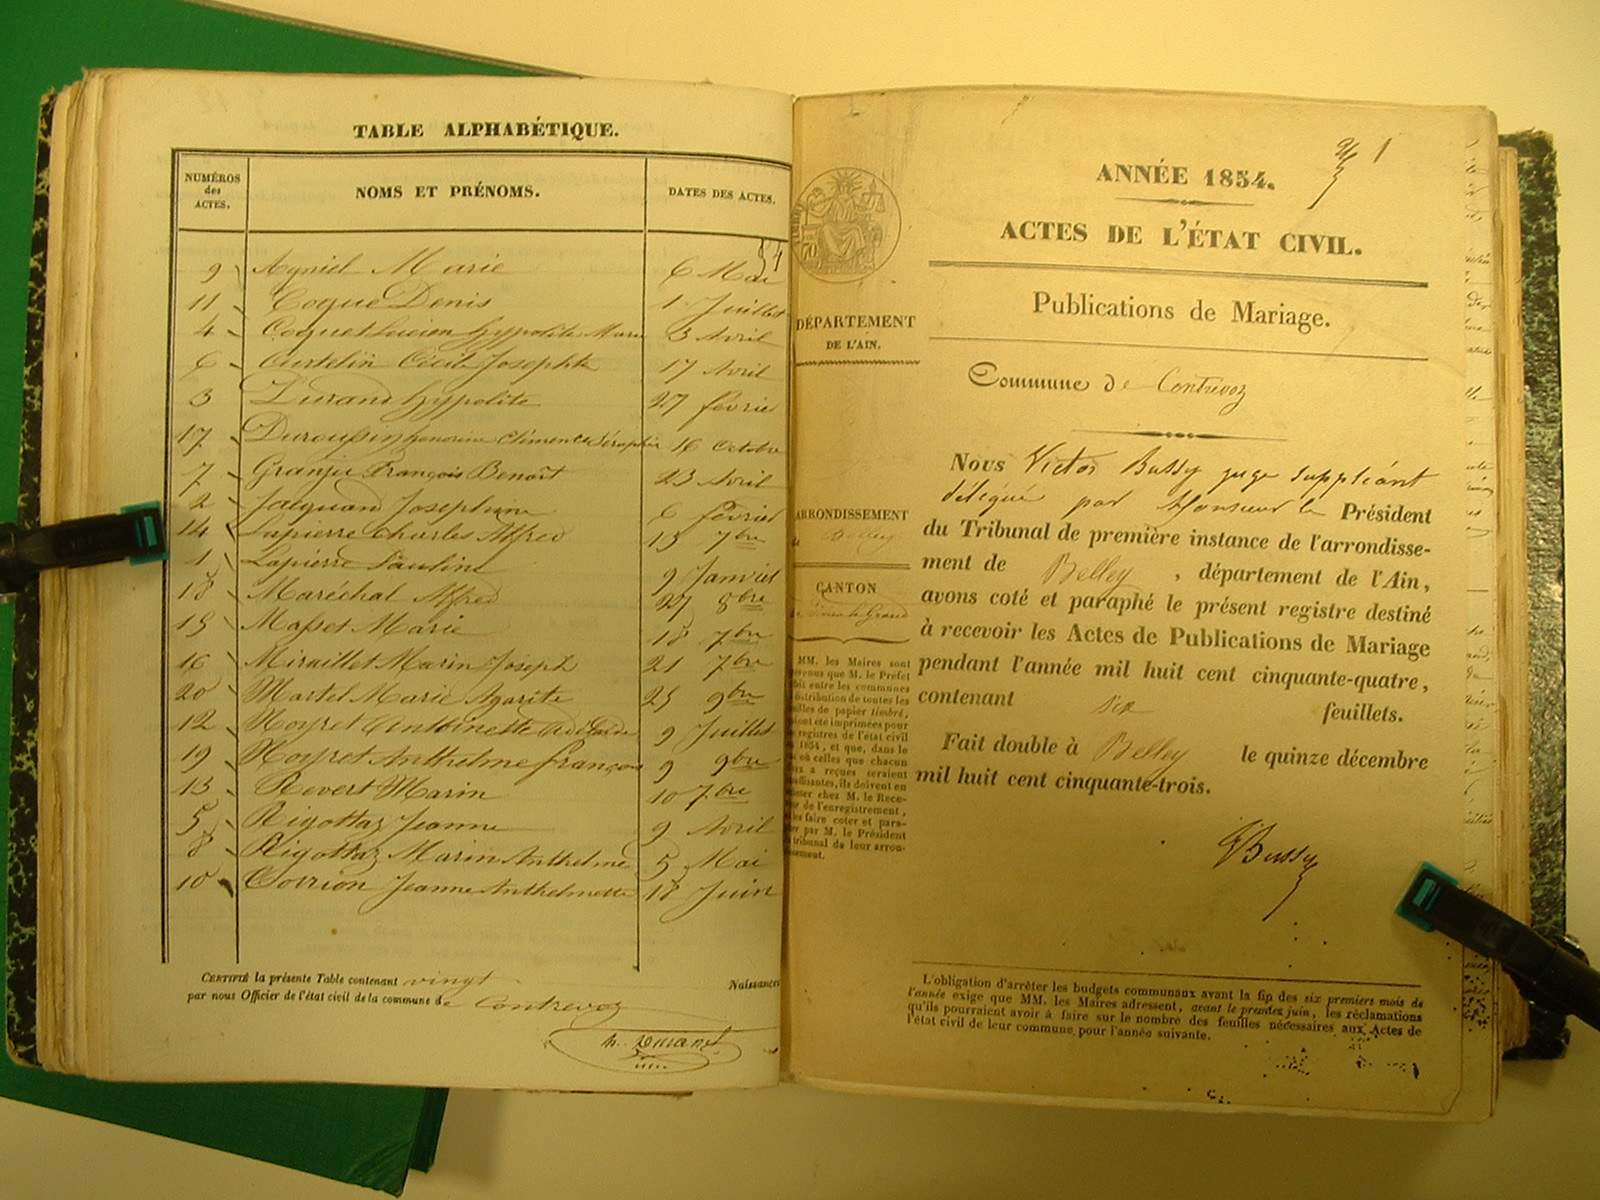 TABLE ALPHABÉTIQUE.
NUMÉROS des ACTES. NOMS ET PRÉNOMS. DATES DES ACTES.
54
9 Ayniel Marie 6 Mai
11 Coque Denis 1 Juillet
4 Coquet Lucien hypolite Marie 3 Avril
6 Curtelin Cécile Josephte 17 Avril
3 Durand hypolite 27 février
17 Duroussin honorine Clémence Séraphie 16 octobre
7 Granju François Benoît 23 Avril
2 Jacquand Josephine 6 février
14 Lapierre Charles Alfred 15 7bre
1 Lapierre Pauline 9 Janvier
18 Maréchal Alfred 27 8bre
15 Masset Marie 18 7bre
16 Miraillet Marin Joseph 21 7bre
20 Martel Marie Agarite 25 9bre
12 Noyret Antoinette 9 Juillet
19 Noyret Anthelme françois 9 9bre
13 Revert Marin 10 7bre
5 Rigottaz Jeanne 9 Avril
8 Rigottaz Marin Anthelme 5 Mai
10 Jeanne Anthelmette 18 Juin
CERTIFIÉ la présente Table contenant vingt Naissances
par nous Officier de l'état civil de la commune de Contrevoz
h. Durand
1
ANNÉE 1854.
ACTES DE L'ÉTAT CIVIL.
Publications de Mariage.
Commune de Contrevoz
DÉPARTEMENT
DE L'AIN.
ARRONDISSEMENT
Belley
CANTON
le Grand
MM. les Maires sont
que M. le Préfet
entre les communes
distribution de toutes les
de papier timbré,
ont été imprimées pour
registres de l'état civil
1854, et que, dans le
où celles que chacun
a reçues seraient
ils doivent en
chez M. le Rece-
de l'enregistrement,
faire coter et para-
par M. le Président
tribunal de leur arron-
Nous Victor Bussy juge suppléant
délégué par Monsieur le Président
du Tribunal de première instance de l'arrondisse-
ment de Belley, département de l'Ain,
avons coté et paraphé le présent registre destiné
à recevoir les Actes de Publications de Mariage
pendant l'année mil huit cent cinquante-quatre,
contenant six feuillets.
Fait double à Belley le quinze décembre
mil huit cent cinquante-trois.
VBussy
L'obligation d'arrêter les budgets communaux avant la fin des six premiers mois de
l'année exige que MM. les Maires adressent, avant le premier juin, les réclamations
qu'ils pourraient avoir à faire sur le nombre des feuilles nécessaires aux Actes de
l'état civil de leur commune pour l'année suivante.